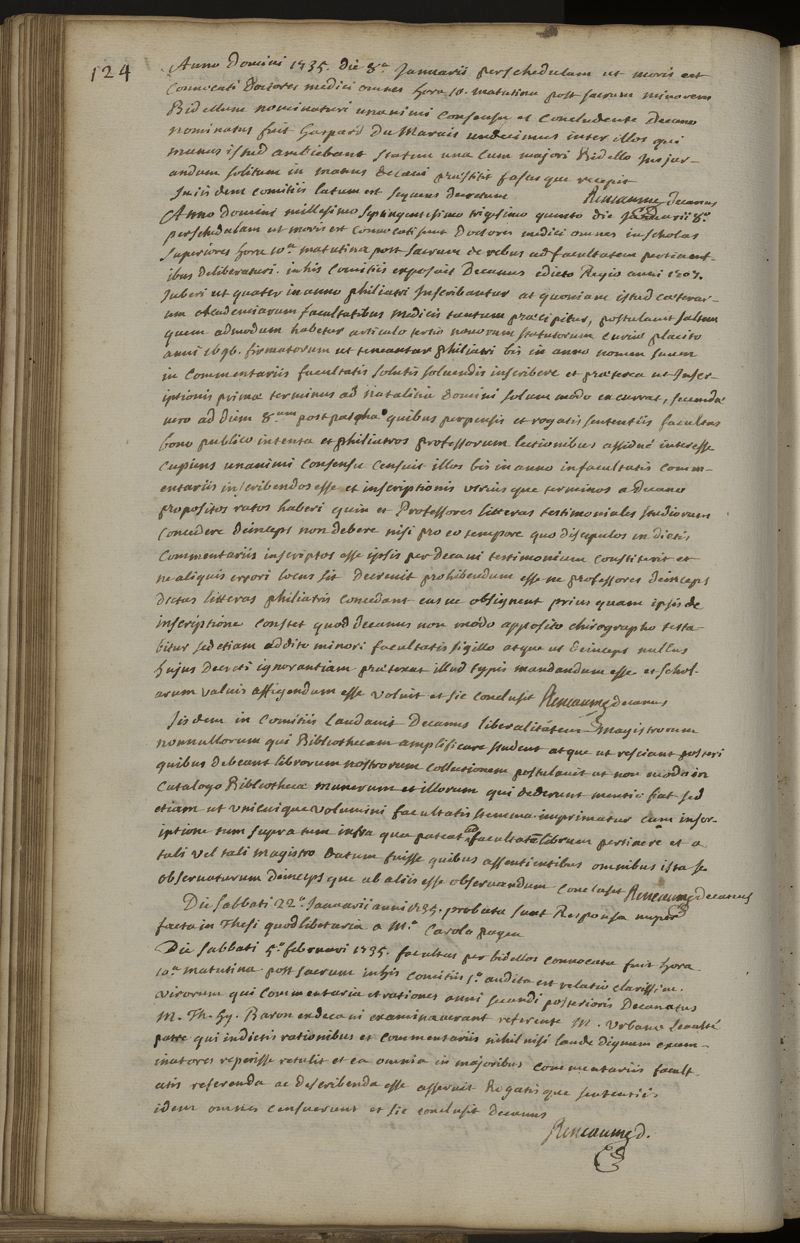 124
Anno Domini 1735. die 8.a Januarii per schedulam ut moris est
Convocati Doctores medici omnes hora 10. matutina post sacrum minorem
Bidellum nominaturi unanimi consensu et Concludente Decano
nominatus fuit Gaspard Du Marais undecimus inter illos qui
munus istud ambiebant statim una cum majori Bidello Jusjur-
andum solitum in manus decani præstitit fasces que recepit
In iis dem comitiis latum est sequens decretum Reneaume decanus
Anno domini millesimo septingentesimo trigesimo quinto die Januarii 8.a
per schedulam ut moris est Convocati sunt Doctores medici omnes in scholas
superiores hora 10.a matutina post sacrum de rebus ad facultatem pertinent-
ibus deliberaturi. in his Comitiis exposuit Decanus edicto Regio anni 1707.
Juberi ut quater in anno philiatri Inscribantur at quoniam istud cæterar-
um Academiarum facultatibus Medicis tantum præcipitur, postulavit saltem
quem admodum habetur articulo tertio novorum statutorum Curiæ placito
anni 1696. firmatorum ut teneantur philiatri bis in anno nomen suum
in Commentariis facultatis solutis solvendis inscribere et præterea ut Inscr-
iptionis primæ terminus ad natalitia Domini solum modo excurrat, secundæ
vero ad diem 8.am post pascha quibus perpensis et rogatis sententiis facultas
bono publico intenta et philiatros professorum lectionibus assidué interesse
Cupiens unanimi Consensu Censuit illos bis in anno in facultatis Comm-
entariis inscribendos esse et inscriptionis utrius que terminos a decano
propositos ratos haberi quin et Professores litteras testimoniales studiorum
Concedere deinceps non debere nisi pro eo tempore quo discipulos in dictis
Commentariis inscriptos esse ipsis per decani testimonium constiterit et
ne aliquis errori locus sit decrevit prohibendum esse ne professores deinceps
dictas litteras philiatris concedant eas ve obsignent prius quam ipsis de
inscriptione constet quod decanus non modo apposito chirographo testa-
bitur sed etiam addito minori facultatis sigillo atque ut deinceps nullus
hujus Decreti ignorantiam prætexat illud typis mandandum esse et schol-
arum valvis affigendum esse voluit et sic conclusit Reneaume decanus
Iisdem in Comitiis Laudavit Decanus liberalitatem Magistrorum
nonnullorum qui Bibliothecam amplificare student atque ut resciant posteri
quibus debeant librorum nostrorum collectionem postulavit ut non modo in
Catalogo Bibliothecæ munerum et illorum qui dederunt mentio fiat sed
etiam ut unicuique volumini facultatis stemma imprimatur cum inscr-
iptione tum supra tum infra qua pateat ad facultatem librum pertinere et a
tali vel tali Magistro Datum fuisse quibus assentientibus omnibus ista se
observaturum deinceps que ab aliis esse observandum Conclusit Reneaume decanus
Die Sabbati 22.a Januarii anni 1735. probata sunt Responsa nuper
facta in Thesi quodlibetaria a M.o Carolo payen
Die Sabbati 5.a februari 1735. facultas per bidellos convocata fuit hora
10.a matutina post sacrum in his comitiis 1.o audita est relatio clarissim.
Virorum qui Commentaria et rationes anni secundi posterioris Decanatus
M. Th. Hy. Baron exdecani examinaverant referente M. Urbano Leaulté
patre qui in dictis rationibus et commentariis nihil nisi laude dignum exam-
inatores reperisse retulit et ea omnia in majoribus commentariis facult-
atis referenda ac describenda esse asseruit Rogatis que sententiis
idem omnes censuerunt et sic conclusit decanus
Reneaume d.